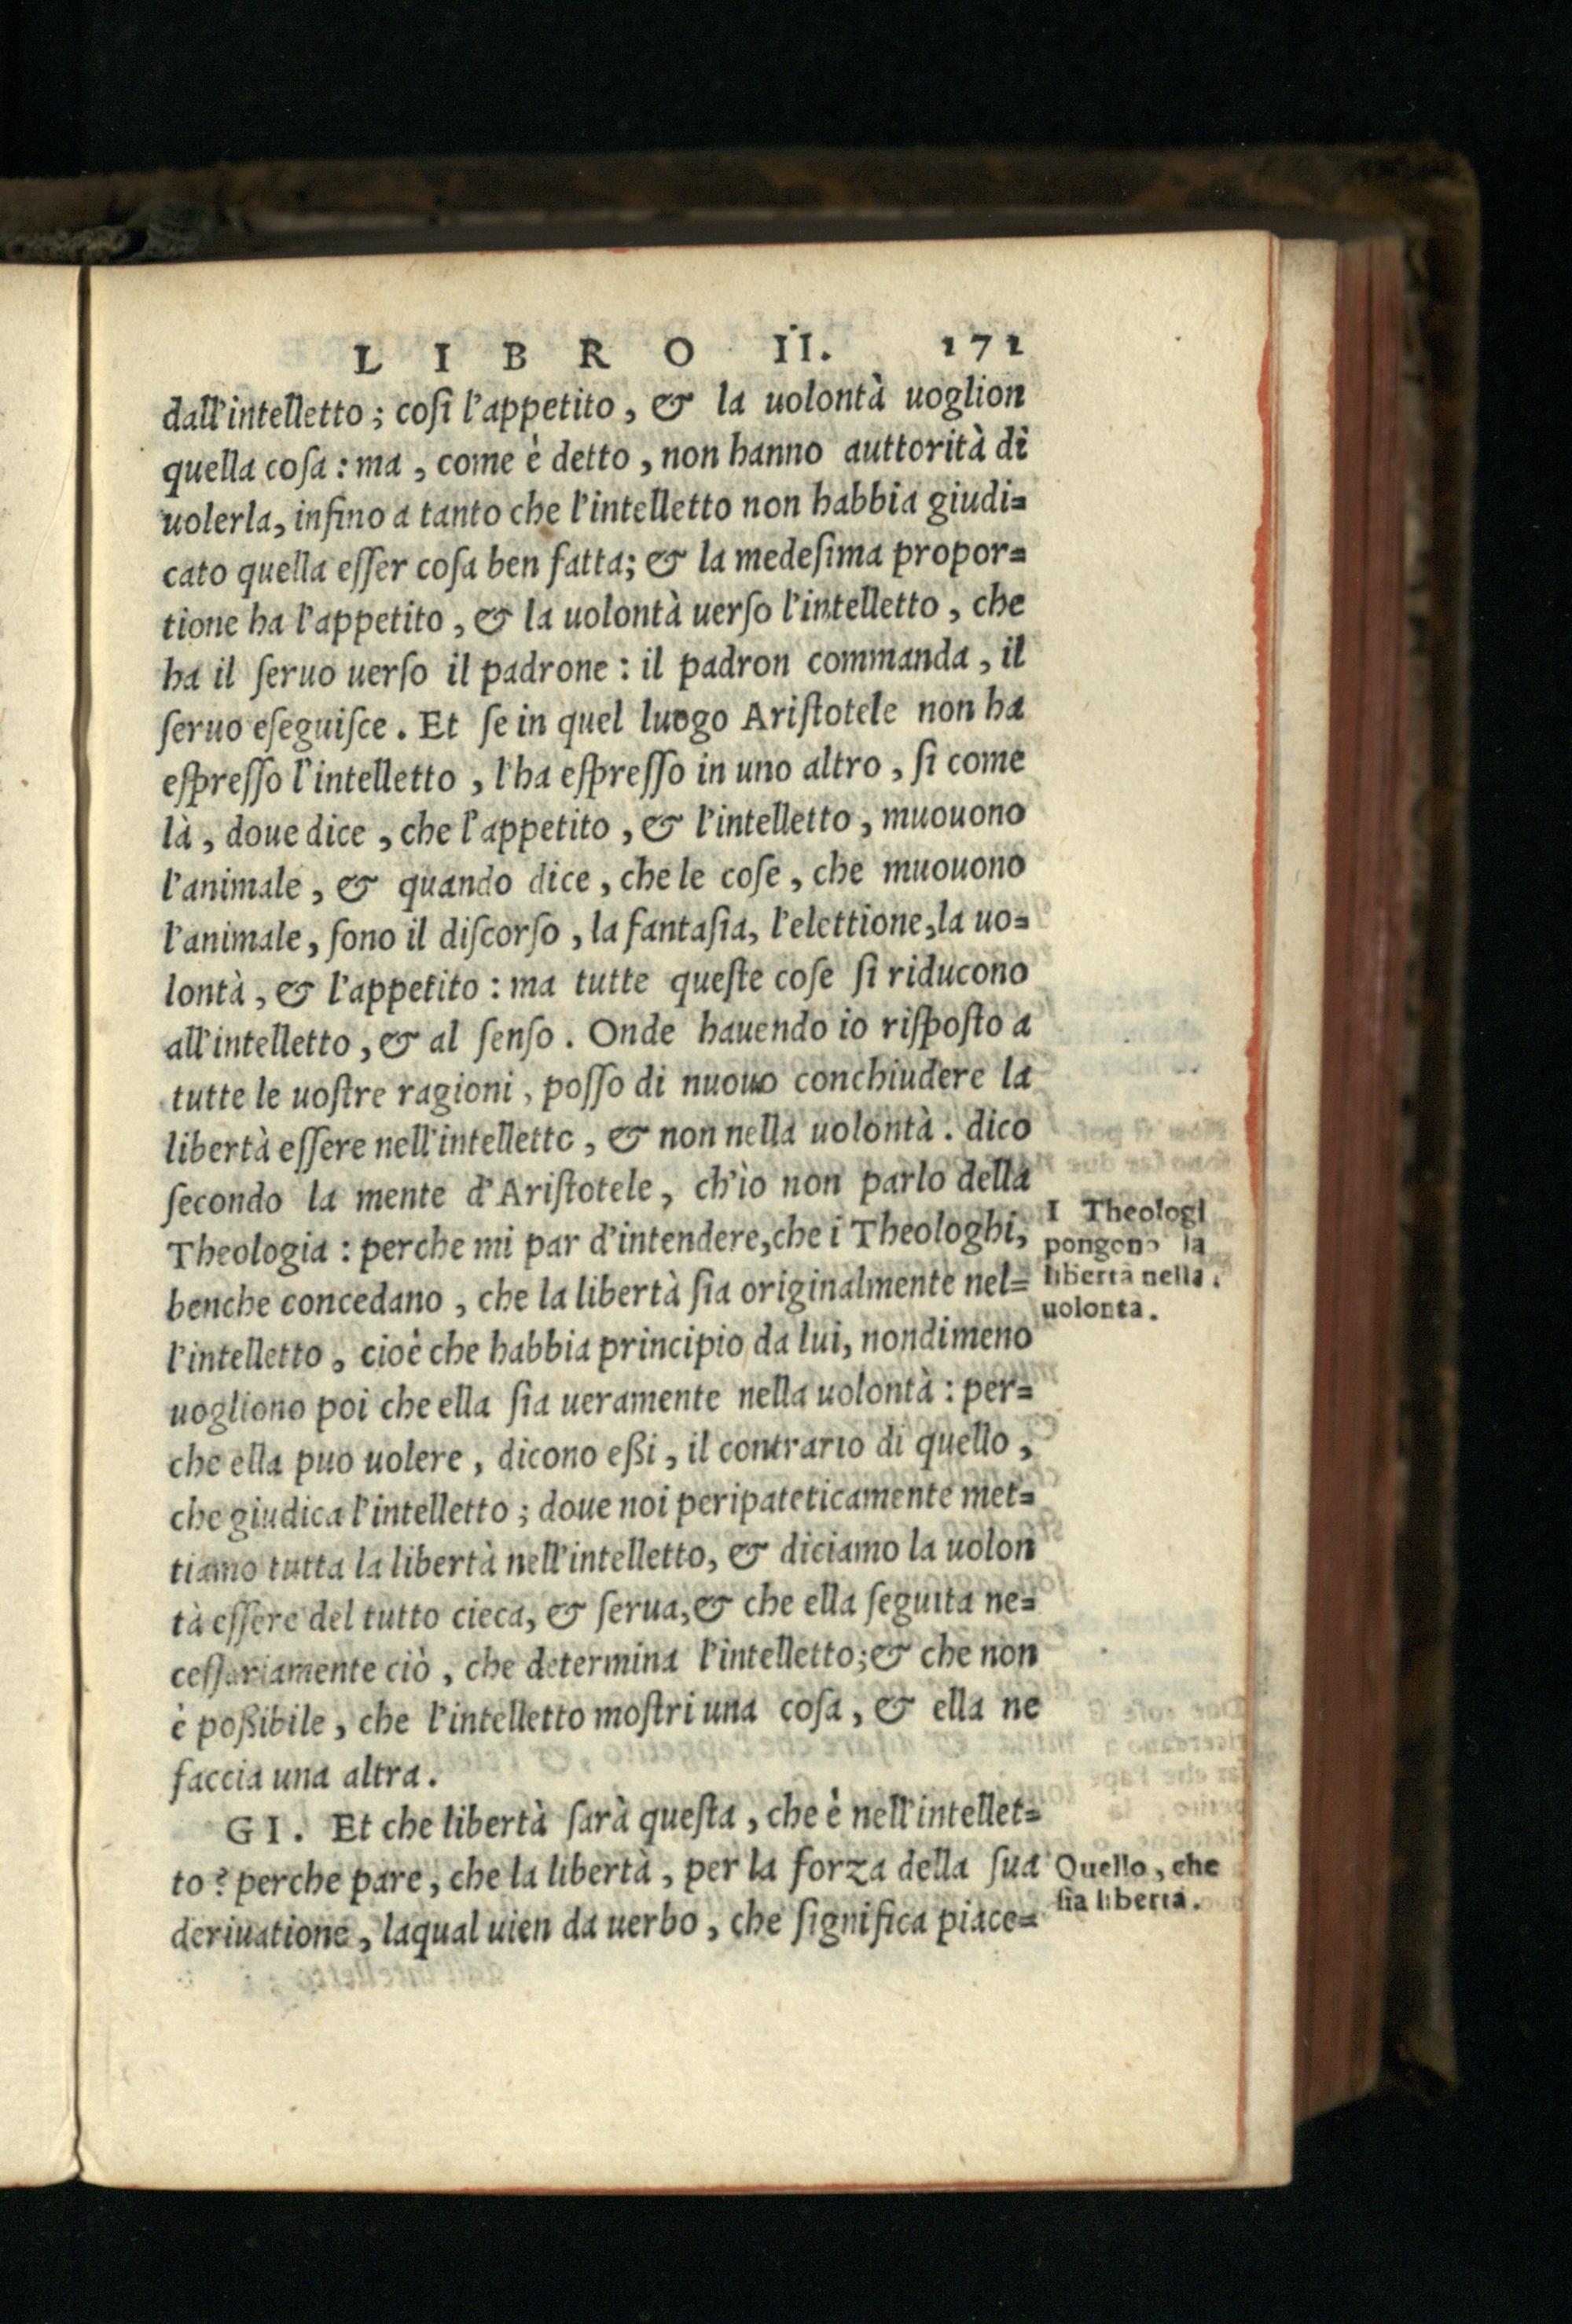 LIBRO II. 171
dall'intelletto; coſi l'appetito, & la uolontà uoglion
quella coſa: ma, come è detto, non hanno auttorità di
uolerla, infino a tanto che l'intelletto non habbia giudi=
cato quella eſſer coſa ben fatta; & la medeſima propor=
tione ha l'appetito, & la uolontà uerſo l'intelletto, che
ha il ſeruo uerſo il padrone: il padron commanda, il
ſeruo eſeguiſce. Et ſe in quel luogo Ariſtotele non ha
eſpreſſo l'intelletto, l'ha eſpreſſo in uno altro, ſi come
là, doue dice, che l'appetito, & l'intelletto, muouono
l'animale, & quando dice, che le coſe, che muouono
l'animale, ſono il diſcorſo, la fantaſia, l'elettione, la uo=
lontà, & l'appetito: ma tutte queſte coſe ſi riducono
all'intelletto, & al ſenſo. Onde hauendo io riſpoſto a
tutte le uoſtre ragioni, poſſo di nuouo conchiudere la
libertà eſſere nell'intelletto, & non nella uolontà. dico
ſecondo la mente d'Ariſtotele, ch'io non parlo della
Theologia: perche mi par d'intendere, che i Theologhi,
benche concedano, che la libertà ſia originalmente nel=
l'intelletto, cioè che habbia principio da lui, nondimeno
uogliono poi che ella ſia ueramente nella uolontà: per=
che ella puo uolere, dicono eßi, il contrario di quello,
che giudica l'intelletto; doue noi peripateticamente met=
tiamo tutta la libertà nell'intelletto, & diciamo la uolon
tà eſſere del tutto cieca, & ſerua, & che ella ſeguita ne=
ceſſariamente ciò, che determina l'intelletto; & che non
è poßibile, che l'intelletto moſtri una coſa, & ella ne
faccia una altra.
GI. Et che libertà ſarà queſta, che è nell'intellet=
to? perche pare, che la libertà, per la forza della ſua
deriuatione, laqual uien da uerbo, che ſignifica piace=
I Theologi
pongono la
libertà nella
uolonta.
Quello, che
ſia libertà.